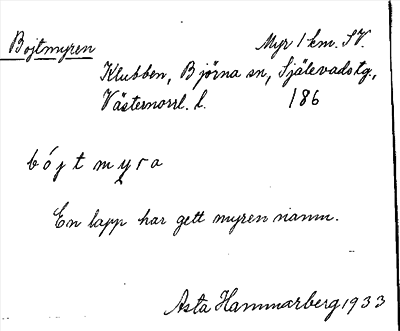 Bojtmyren Myr 1 km. SV.
Klubben, Björna sn, Själevads tg.,
Västernorrl. l. 186
bójtmyra
En lapp har gett myren namn.
Asta Hammarberg 1933